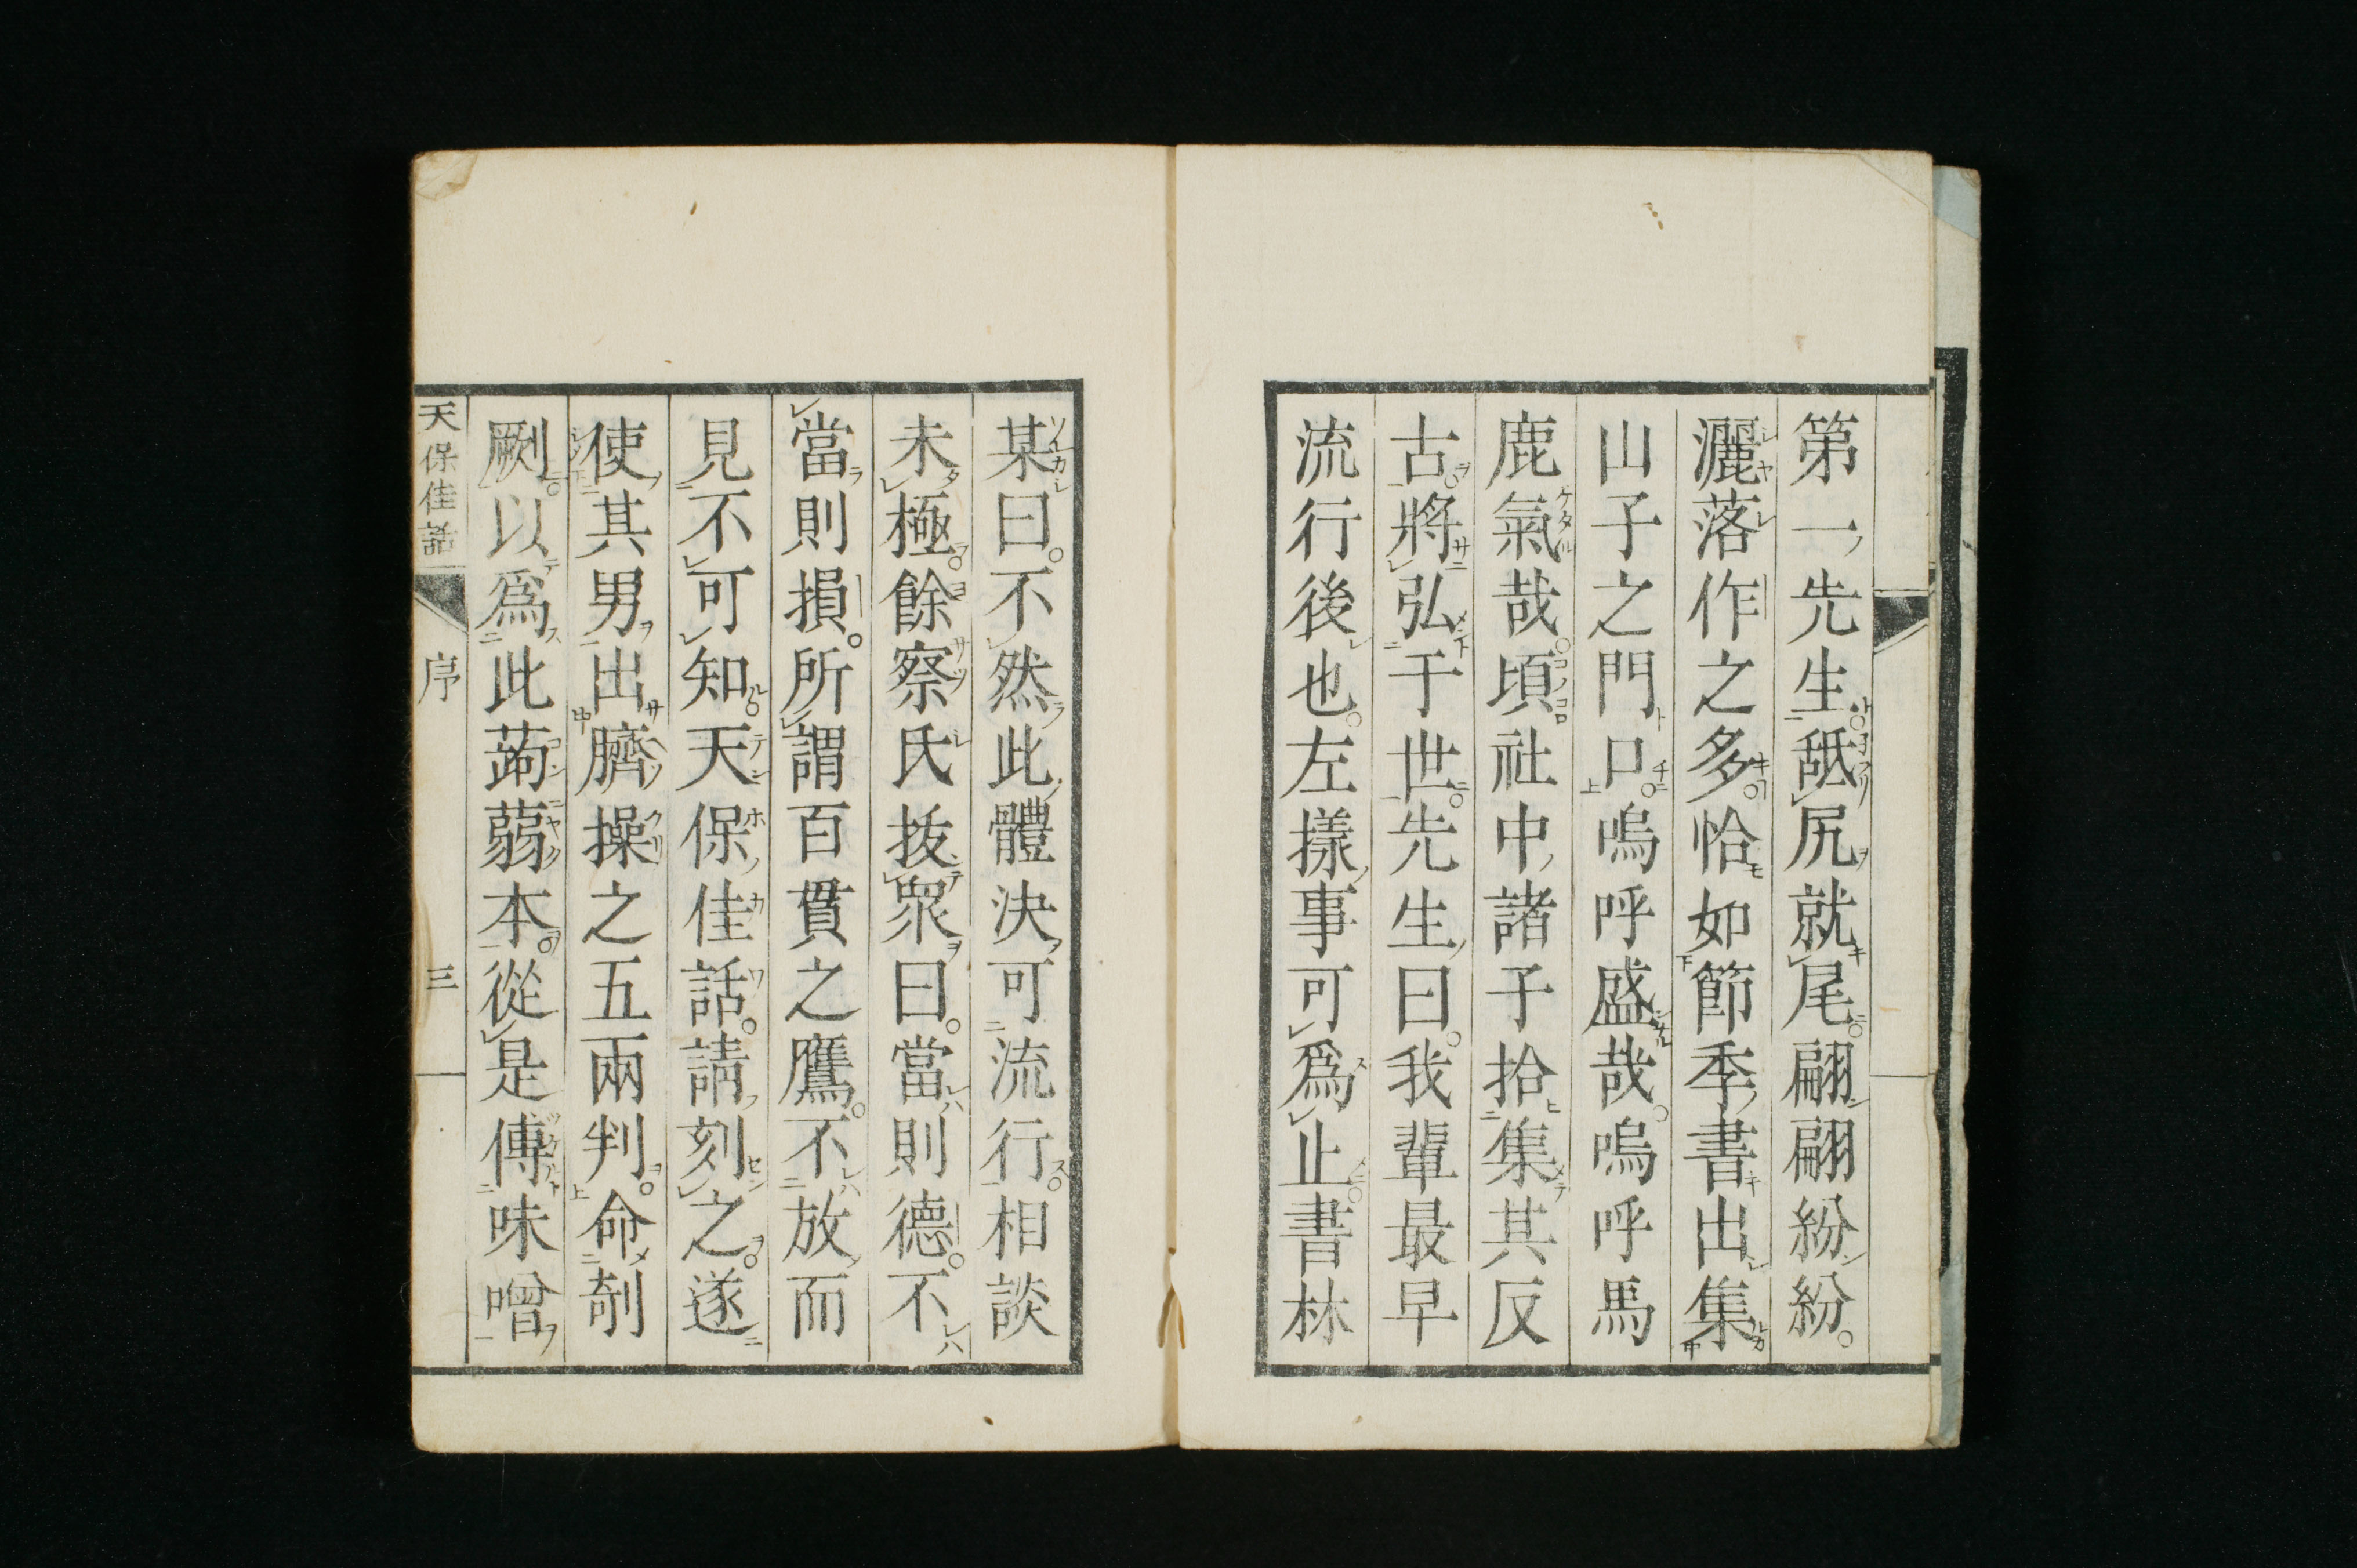 第一先生舐尻就尾翩翩紛紛
灑落作之多恰如節季書出集
山子之門口嗚呼盛哉嗚呼馬
鹿氣哉頃社中諸子拾集其反
古將弘于世先生曰我輩最早
流行後也左樣事可爲止書林
某曰不然此體決可流行相談
未極餘察氏拔衆曰當則德不
當則損所謂百貫之鷹不放而
見不可知天保佳話請刻之遂
使其男出臍操之五兩判命剞
劂以爲此蒟蒻本從是傳味噌
天保佳話 序 三